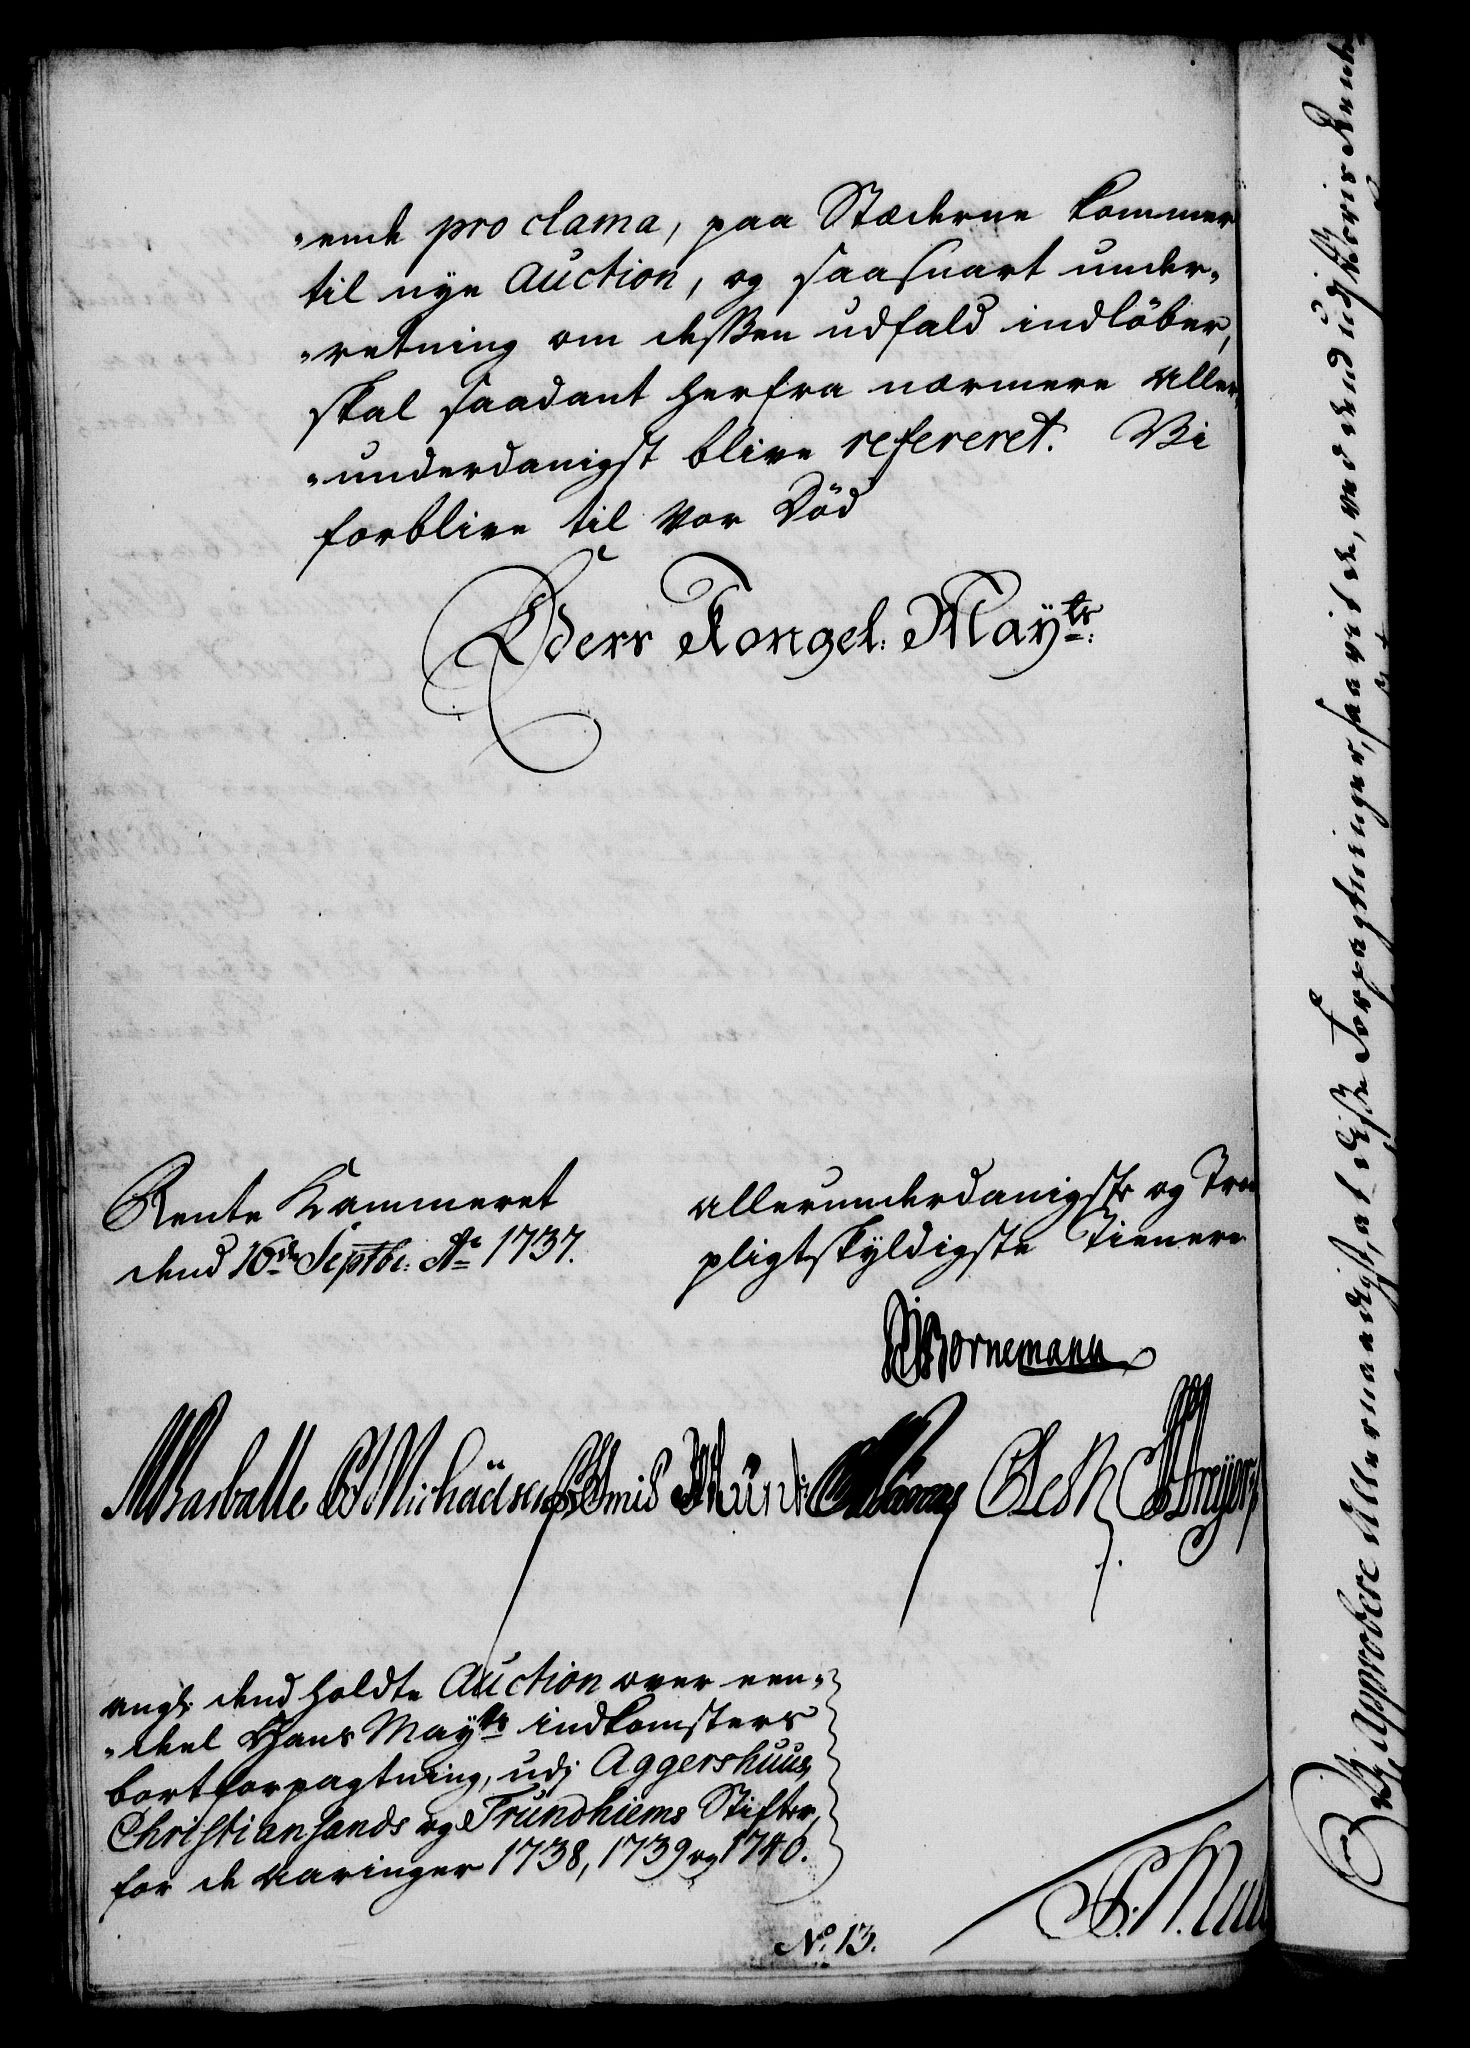 -ende proclama, paa Stæderne kommer
til nye Auction, og saasnart under-
-retning om deßen udfald indlöber,
skal saadant herfra nærmere aller-
-underdanigst blive refereret. Vi
forblive til vor Död
Eders Kongel: Mayts:
Rente Kammeret
dend 16de Septbr: Ao 1737.
allerunderdanigste og Troe
pligtskyldigste Tienere
Bornemann
angl: dend holdte Auction over een-
-deel Hans Mayts indkomsters
bortforpagtning, udj Aggershuus,
Christiansands og Trundhiems Stifter,
for de aaringer 1738, 1739 og 1740.
No. 13.
Vi Approbere Allernaadigst, at diße Forpagtninger, saavidt de, ved dend udj Vores Rente